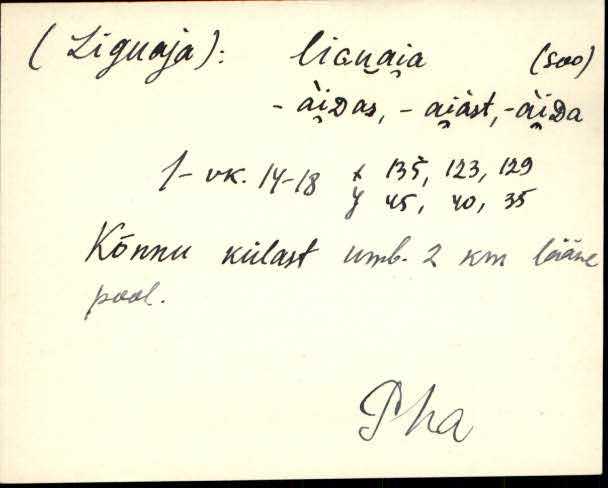 (Liguaja): liɢu̯ai̯a (soo)
- ài̯Das, - ai̯àst, - ài̯Da
1- vk. 14-18 x 135, 123, 129
y 45, 40, 35
Kõnnu külast umb. 2 km lääne
pool.
Pha